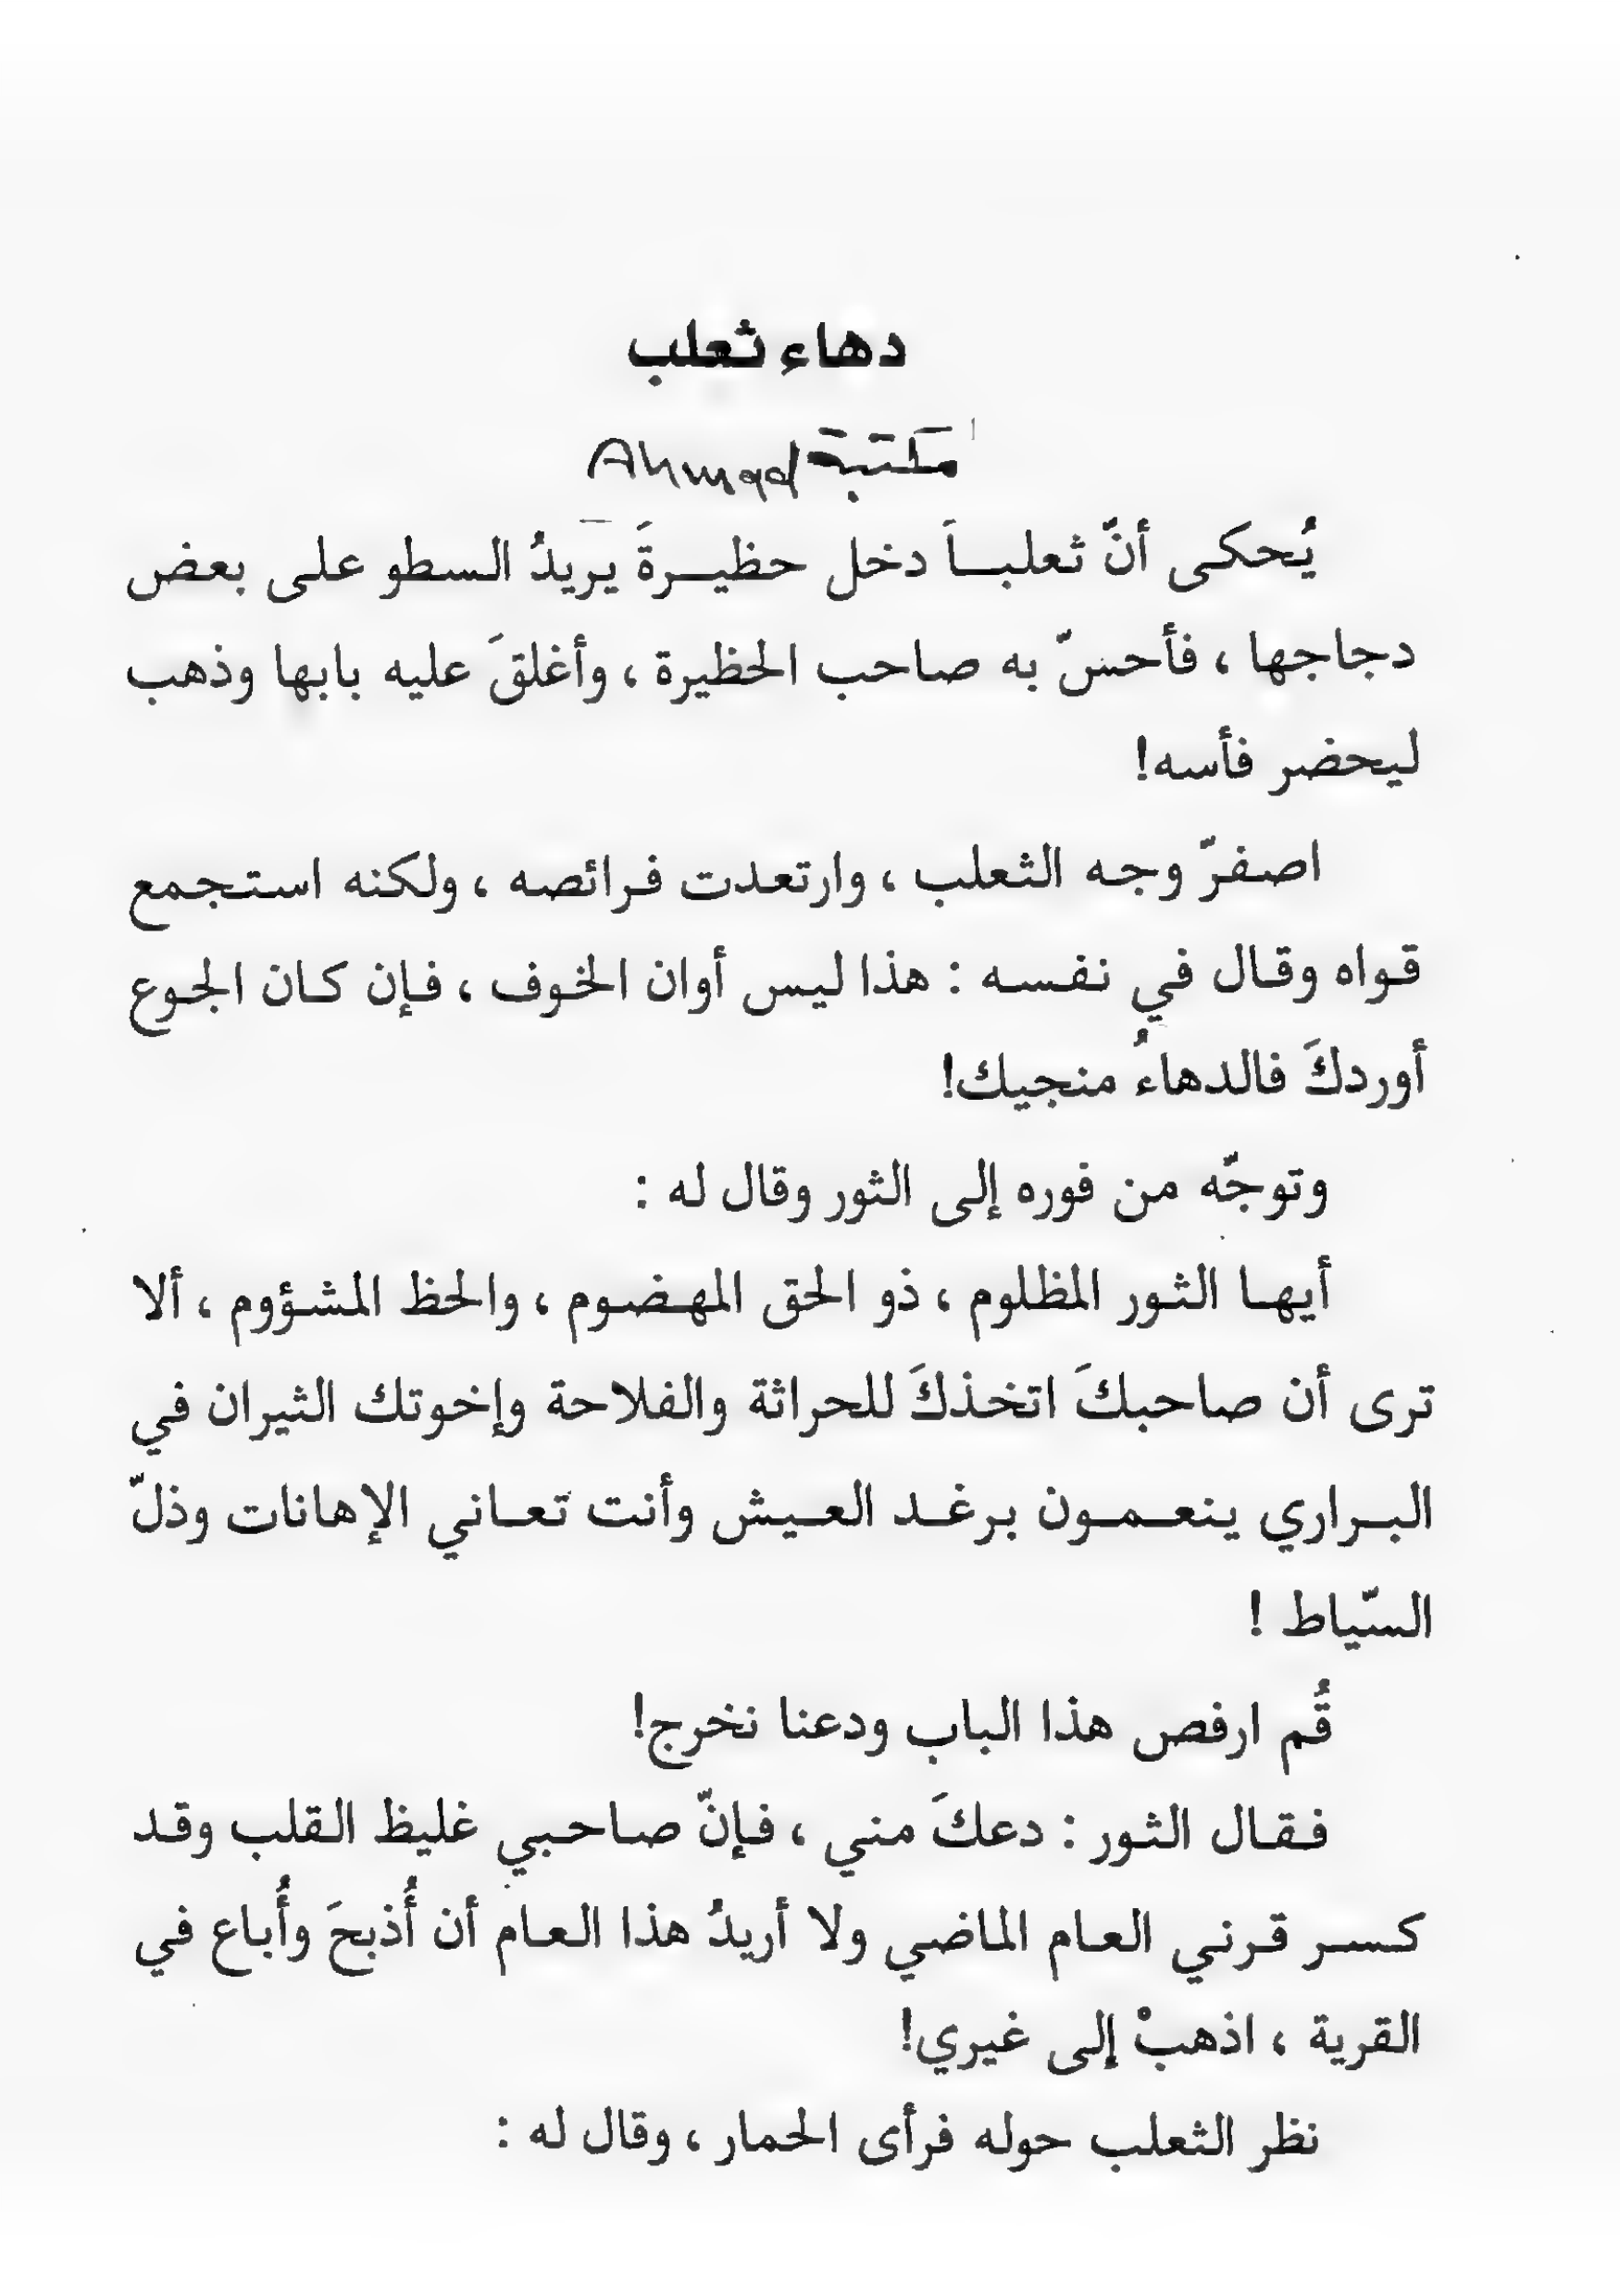 دهاء ثعلب
مكتبة Ahmad
يُحكى أنّ ثعلبـاً دخل حظيـرةَ يريدُ السطو على بعض
دجاجها ، فأحسّ به صاحب الحظيرة ، وأغلقَ عليه بابها وذهب
ليحضر فأسه!
اصفرّ وجه الثعلب ، وارتعدت فرائصه ، ولكنه استجمع
قواه وقال في نفسه : هذا ليس أوان الخوف ، فإن كان الجوع
أوردكَ فالدهاءُ منجيك!
وتوجّه من فوره إلى الثور وقال له :
أيها الثور المظلوم ، ذو الحق المهضوم ، والحظ المشؤوم ، ألا
ترى أن صاحبكَ اتخذكَ للحراثة والفلاحة وإخوتك الثيران في
البراري ينعمون برغد العيش وأنت تعاني الإهانات وذلّ
السّياط !
قُم ارفص هذا الباب ودعنا نخرج!
فقال الثور : دعكَ مني ، فإنّ صاحبي غليظ القلب وقد
كسر قرني العام الماضي ولا أريدُ هذا العام أن أُذبحَ وأُباع في
القرية ، اذهبْ إلى غيري!
نظر الثعلب حوله فرأى الحمار ، وقال له :